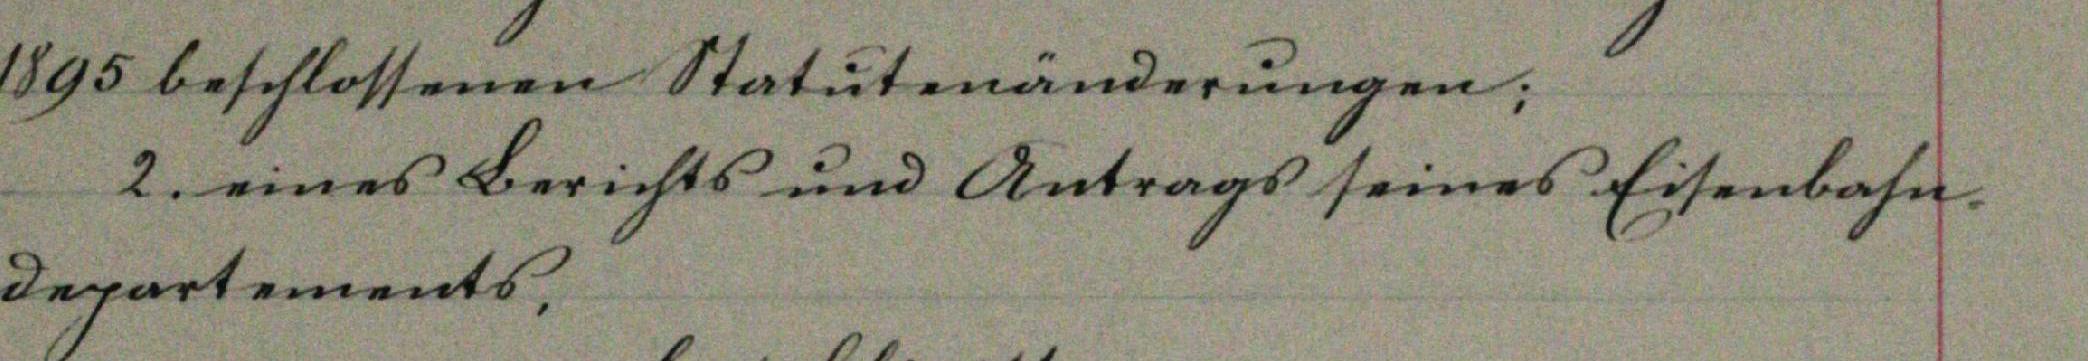 1895 beschlossenen Statutenänderungen;
2. eines Berichts und Antrags seines Eisenbahn-
departements,